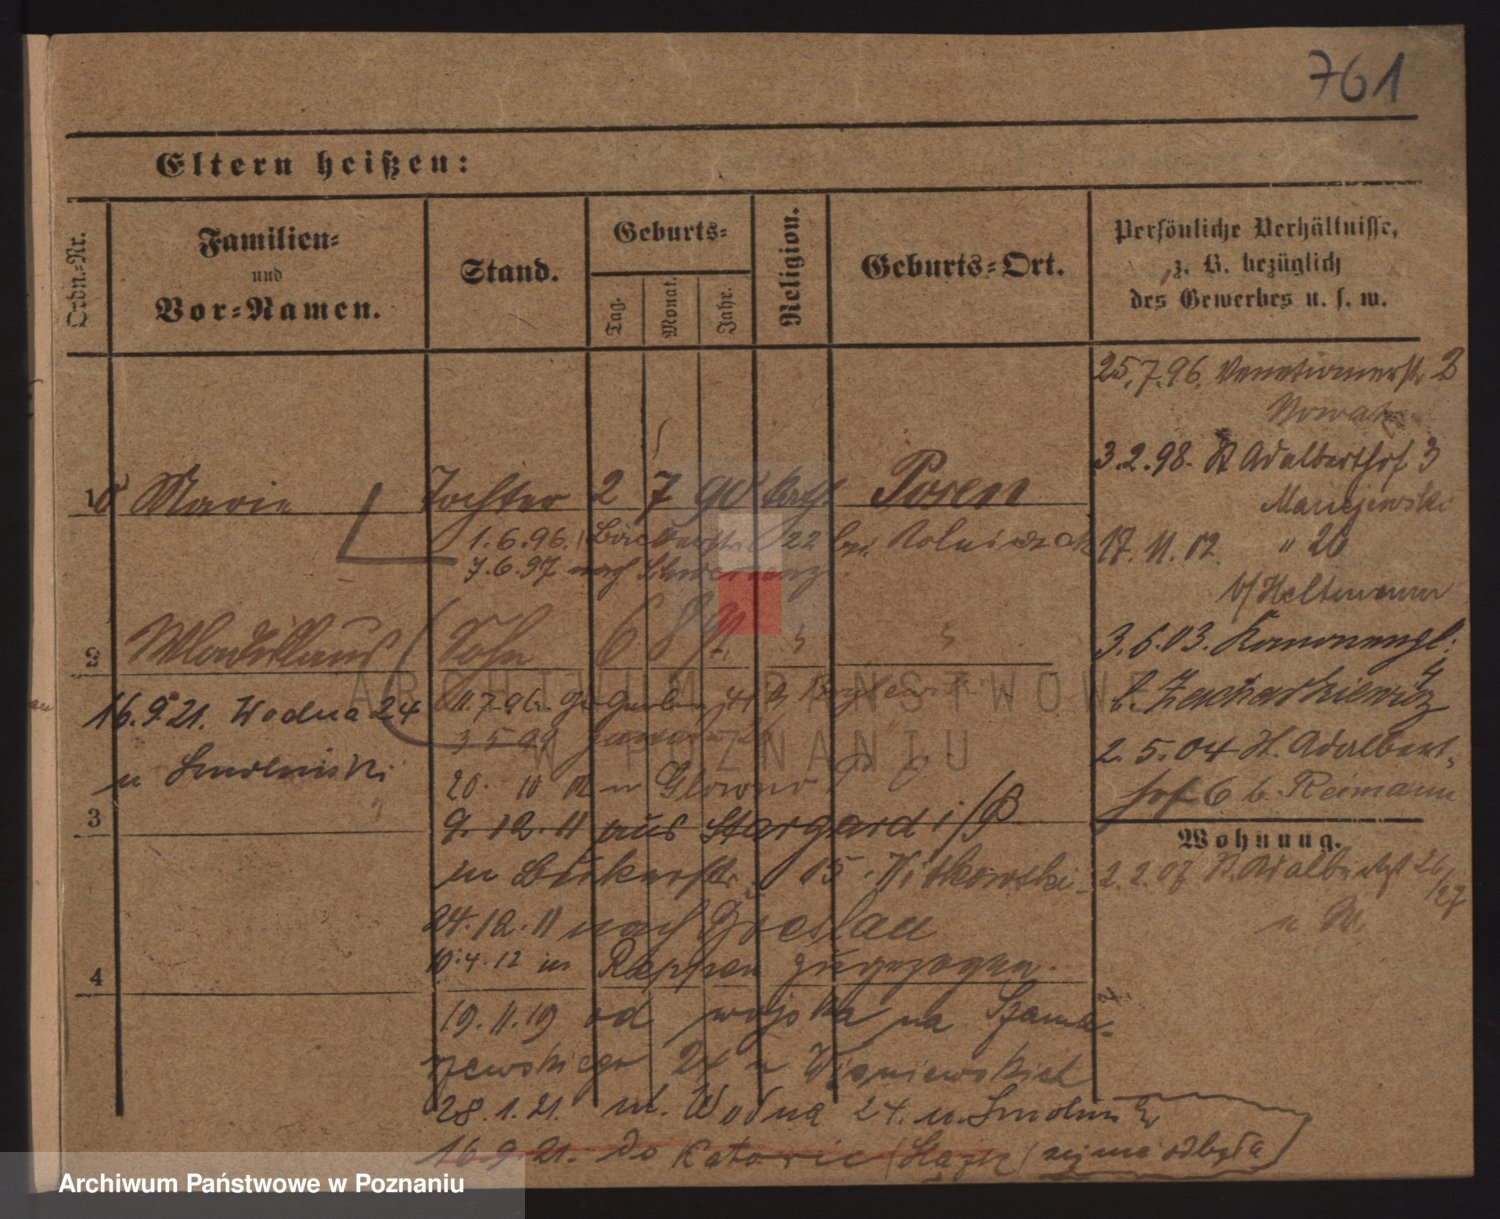 761
Eltern heißen:
Ordn.-Nr.
Familien-
und
Vor-Namen.
Stand.
Geburts-
Tag.
Monat.
Jahr.
Religion.
Geburts-Ort.
Persönliche Verhältnisse,
z. B. bezüglich
des Gewerbes u. s. w.
25.7.96. Venetianerstr 2
Nowak
3.2.98. St Adalberthof 3
Maciejewski
1 Marie Tochter 2 7 90 kath Posen
1.6.96. 22 bei
7.6.97 nach Schwersenz
17.11.02. " 26
b/ Heltmann
2 Wladislaus Sohn 6 8 " "
3.6.03. Kanonenpl. 4
b. Zacharkiewicz
16.9.21. Wodna 24
u Smolinski
11.7.96.
3.5.99
20. 10 02 n Glowno
2.5.04 St. Adalbert-
hof 6 b. Reimann
3
9.12.11 aus Stargard i/P
in Bukerstr. 15. Witkowski
Wohnung.
2.2.07 St. Adalbertst 26/27
24.12.11 nach Breslau
4
10.4.12 in zugezogen.
19.11.19 od wojska na Szama-
rzewskiego 24 u Wisniewskich
28.1.21. ul. Wodna 24. u. Smolinski
16.9.21. do Katowic (Śląsk) się nie odbyła
ARCHIWUM PAŃSTWOWE
W POZNANIU
Archiwum Państwowe w Poznaniu